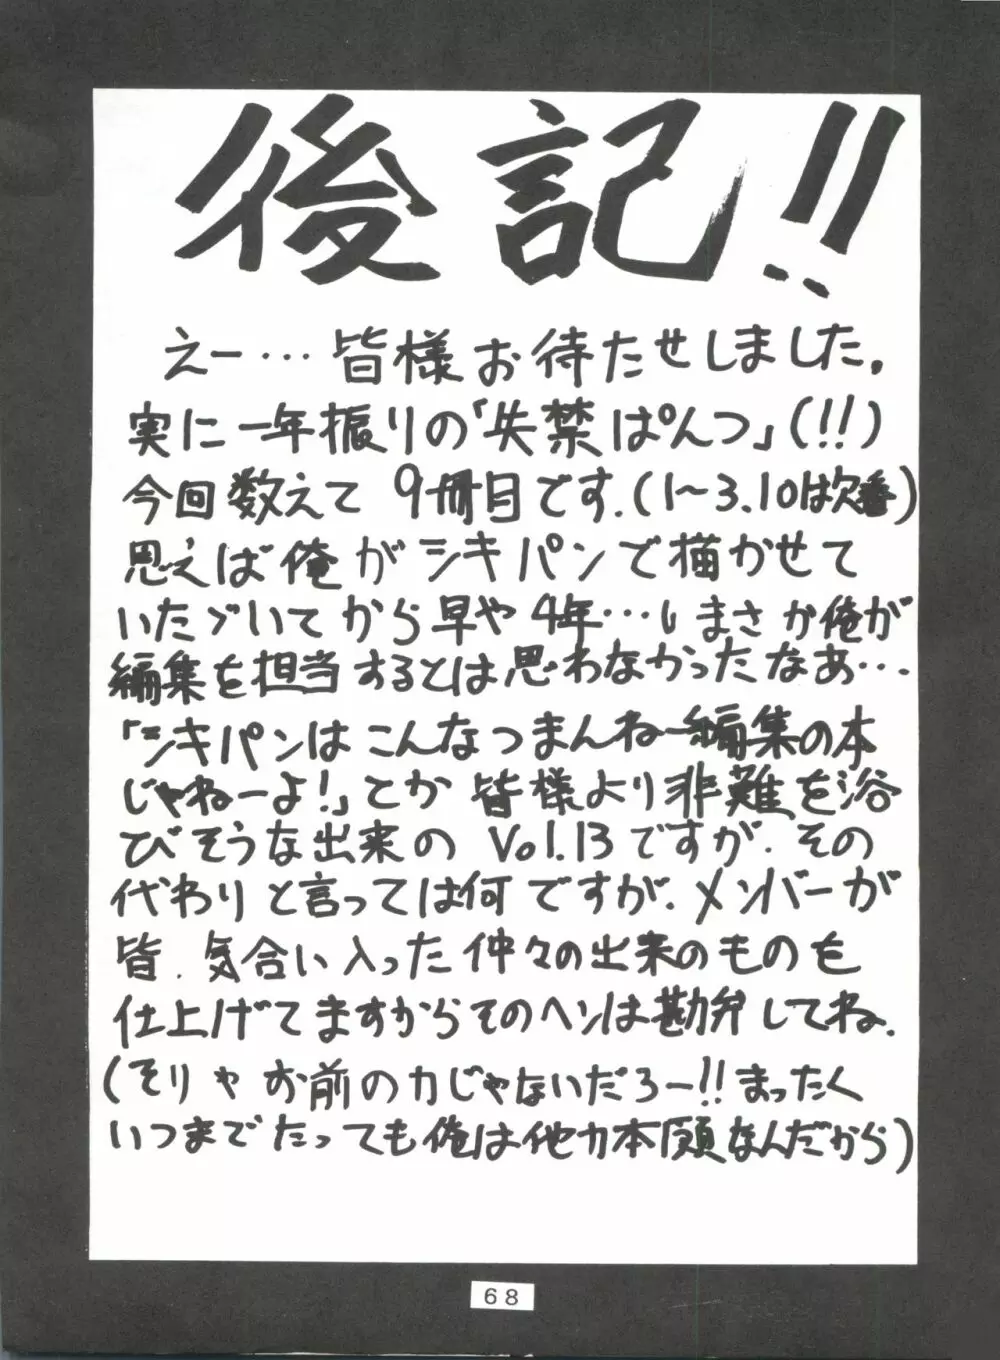 後記!!
えー…皆様お待たせしました。
実に一年振りの「失禁ぱんつ」(!!)
今回数えて9冊目です。(1〜3.10は欠番)
思えば俺がシキパンで描かせて
いたゞいてから早や4年…いまさか俺が
編集を担当するとは思わなかったなあ…
「シキパンはこんなつまんねー編集の本
じゃねーよ!」とか皆様より非難を浴
びそうな出来のVol.13ですが、その
代わりと言っては何ですが、メンバーが
皆、気合い入った仲々の出来のものを
仕上げてますからそのヘンは勘弁してね。
(そりゃお前の力じゃないだろー!!まったく
いつまでたっても俺は他力本願なんだから)
68